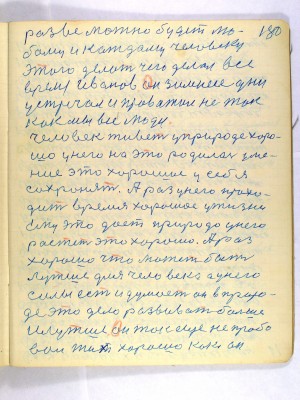 разве можно будет лю- 180
бому и каждому человеку
этого делат чего делал все
время Иванов он зимние дни
устречал и проважал не так
как мы все люди.
Человек живет у природе хоро-
шо у него на это родилас уме-
ние это хорошое у себя
сохронят. А раз у него прихо-
дит время хорошое у жизни
ему это дает природа у него
растет это хорошо. А раз
хорошо что может быть
лутше для человека а у него
силы ест и думает он в приро-
де это дело развиват больше
и лутше он тоже еще не пробо
вал жит хорошо как он